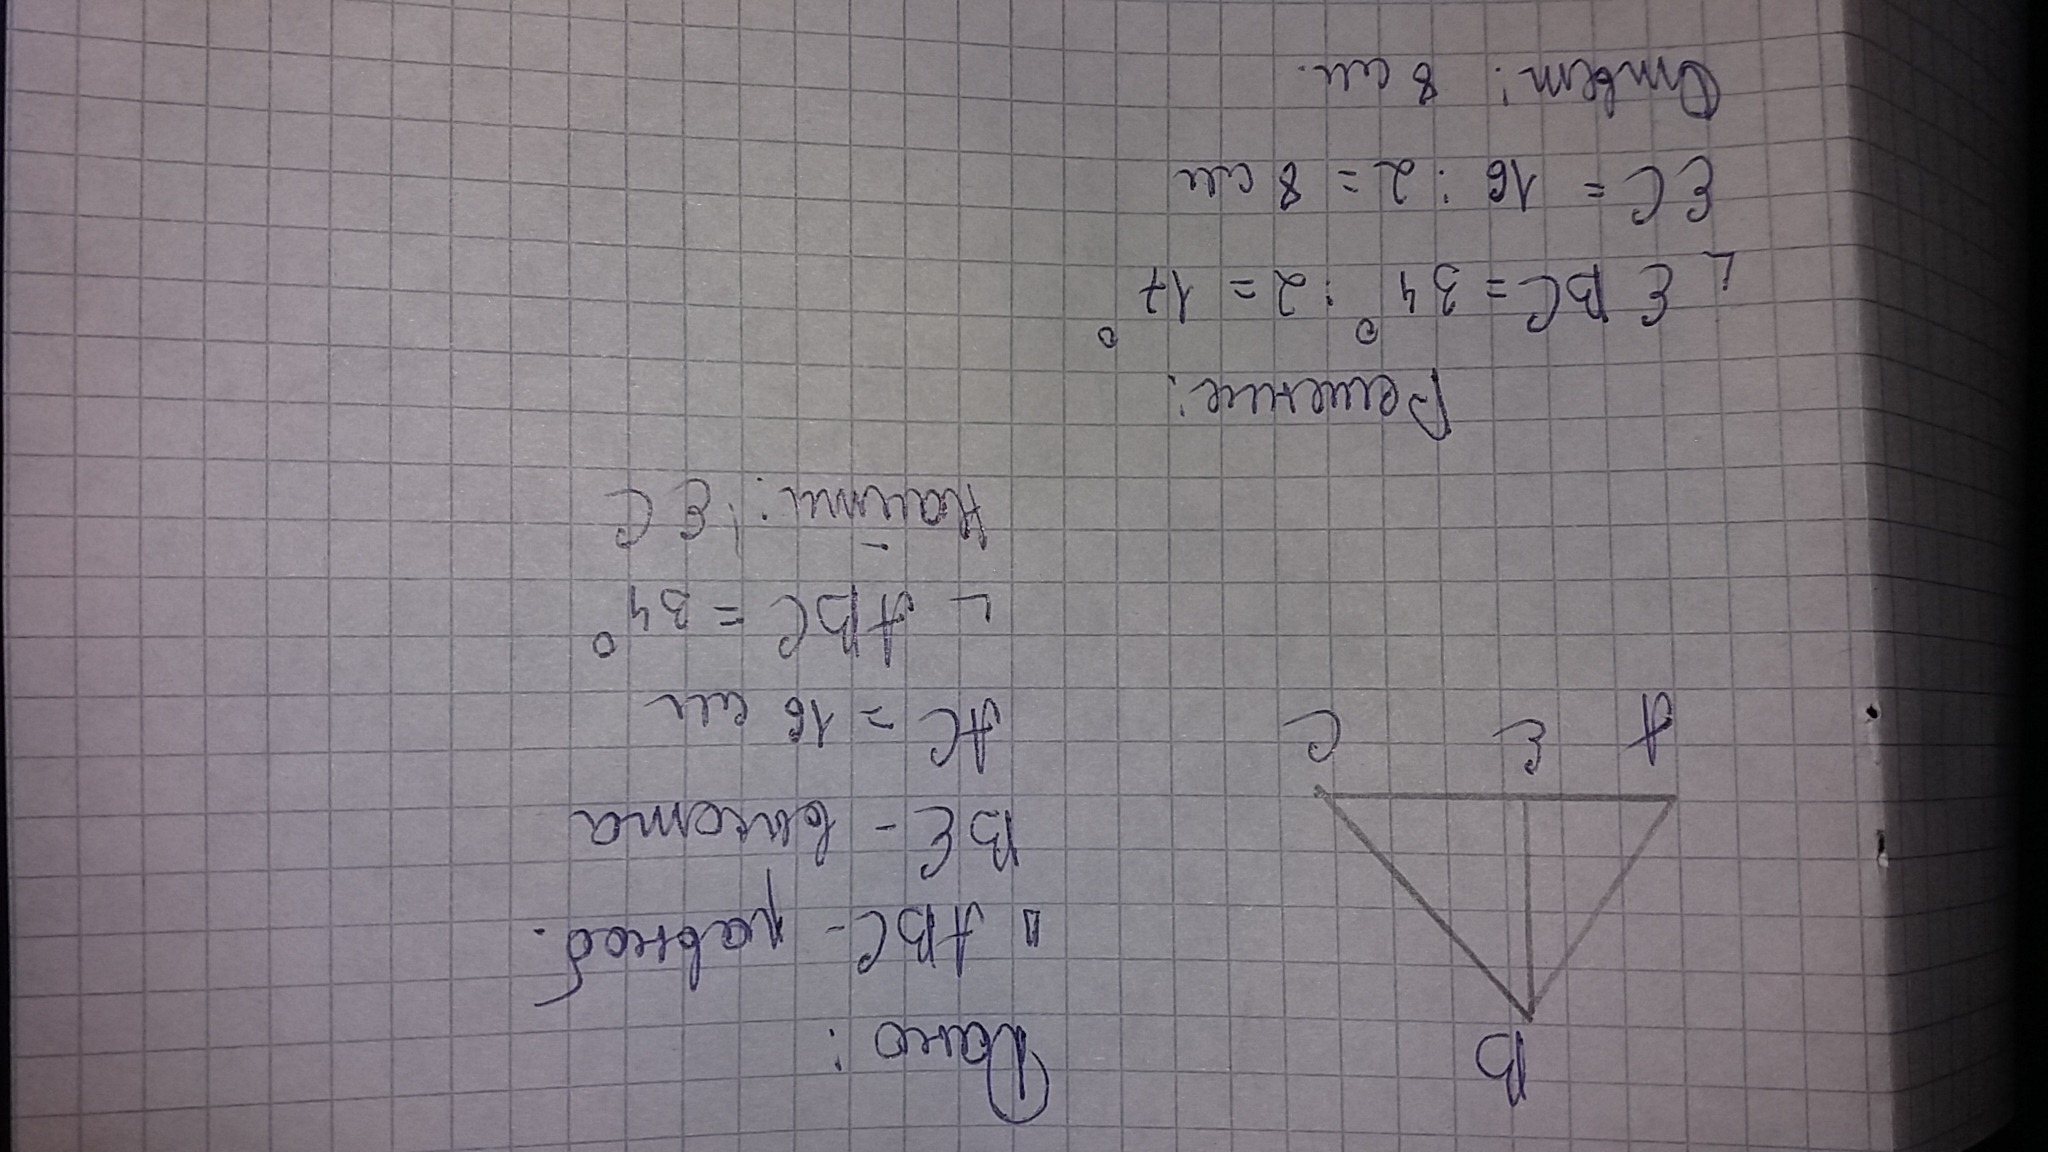 Дано:
B
▯ ABC - равноб.
BE - висота
A E C
AC = 16 см
∟ ABC = 34°
Найти: EC
Решение:
∟ EBC = 34° : 2 = 17°
EC = 16 : 2 = 8 см
Ответ: 8 см.